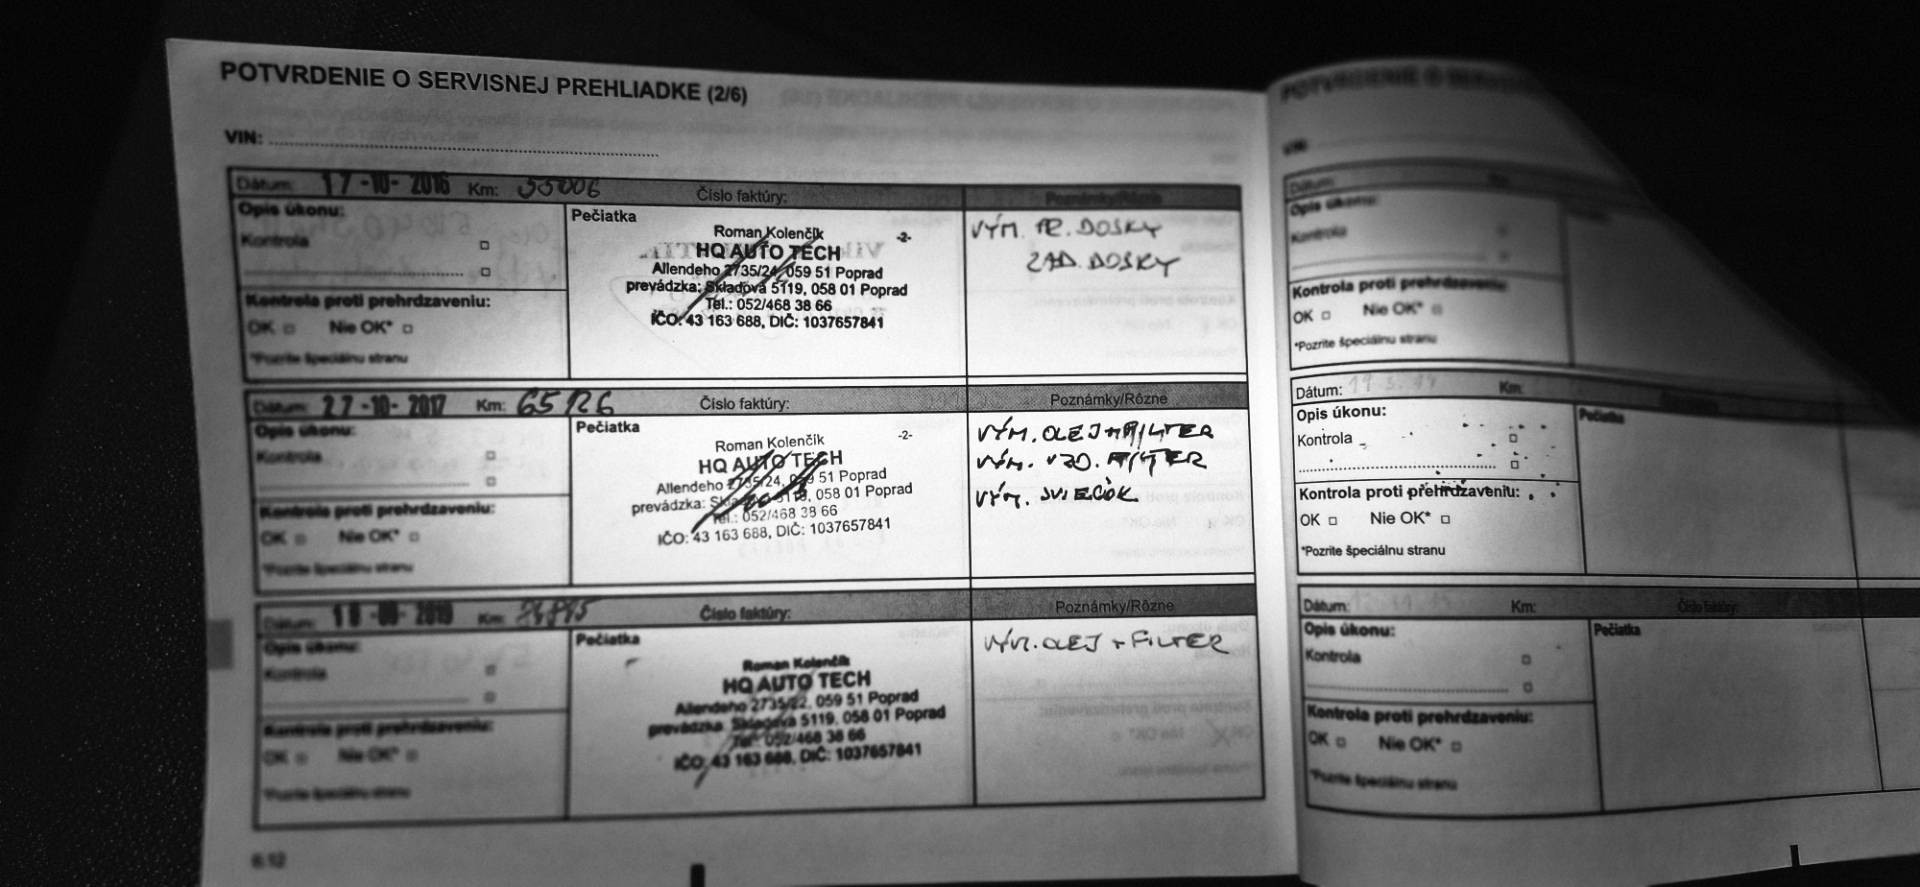 POTVRDENIE O SERVISNEJ PREHLIADKE (2/6)
VIN:
Dátum: 17-10-2016 Km: 55006 Číslo faktúry: Poznámky/Rôzne
Opis úkonu:
Kontrola
Kontrola proti prehrdzaveniu:
OK Nie OK*
*Pozrite špeciálnu stranu
Pečiatka
Roman Kolenčík -2-
HQ AUTO TECH
Allendeho 2735/24, 059 51 Poprad
prevádzka: Skladová 5119, 058 01 Poprad
Tel.: 052/468 38 66
IČO: 43 163 688, DIČ: 1037657841
VÝM. PR. DOSKY
ZAD. DOSKY
Dátum: 27-10-2017 Km: 65126 Číslo faktúry: Poznámky/Rôzne
Opis úkonu:
Kontrola
Kontrola proti prehrdzaveniu:
OK Nie OK*
*Pozrite špeciálnu stranu
Pečiatka
Roman Kolenčík -2-
HQ AUTO TECH
Allendeho 2735/24, 059 51 Poprad
prevádzka: Skladová 5119, 058 01 Poprad
Tel.: 052/468 38 66
IČO: 43 163 688, DIČ: 1037657841
VÝM. OLEJ + FILTER
VÝM. VZD. FILTER
VÝM. SVIEČOK
Dátum: Km: Číslo faktúry: Poznámky/Rôzne
Opis úkonu:
Kontrola
Kontrola proti prehrdzaveniu:
OK Nie OK*
*Pozrite špeciálnu stranu
Pečiatka
Roman Kolenčík
HQ AUTO TECH
Allendeho 2735/22, 059 51 Poprad
prevádzka: Skladová 5119, 058 01 Poprad
Tel.: 052/468 38 66
IČO: 43 163 688, DIČ: 1037657841
VÝM. OLEJ + FILTER
6.12
POTVRDENIE O
VIN:
Dátum:
Opis úkonu:
Kontrola
Kontrola proti prehrdzaveniu
OK Nie OK*
*Pozrite špeciálnu stranu
Dátum: Km:
Opis úkonu: Pečiatka
Kontrola
Kontrola proti prehrdzaveniu:
OK Nie OK*
*Pozrite špeciálnu stranu
Dátum: Km: Číslo faktúry:
Opis úkonu: Pečiatka
Kontrola
Kontrola proti prehrdzaveniu:
OK Nie OK*
*Pozrite špeciálnu stranu